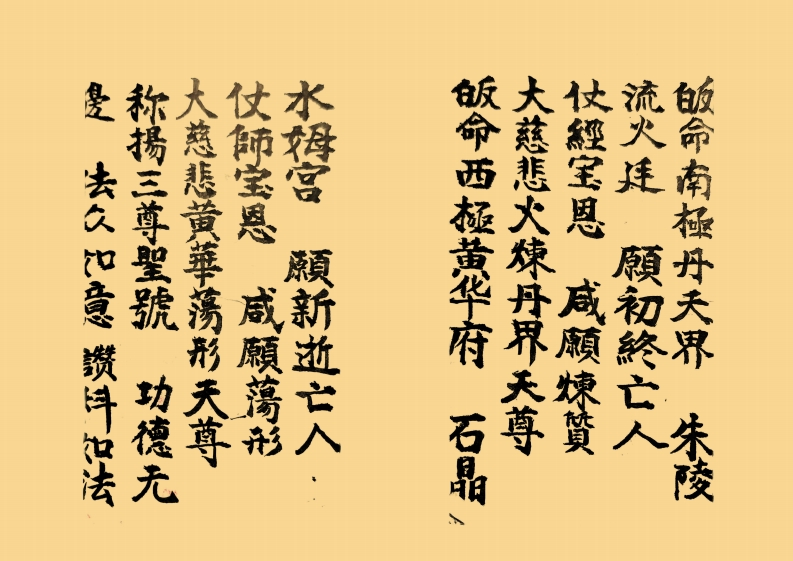 皈命南極丹天界 朱陵
流火廷 願初終亡人
仗經宝恩 咸願煉質
大慈悲火煉丹界天尊
皈命西極黄华府 石晶
水姆宮 願新逝亡人
仗師宝恩 咸願蕩形
大慈悲黃華蕩形天尊
称揚三尊聖號 功德无
邊 法众如意 讚科如法